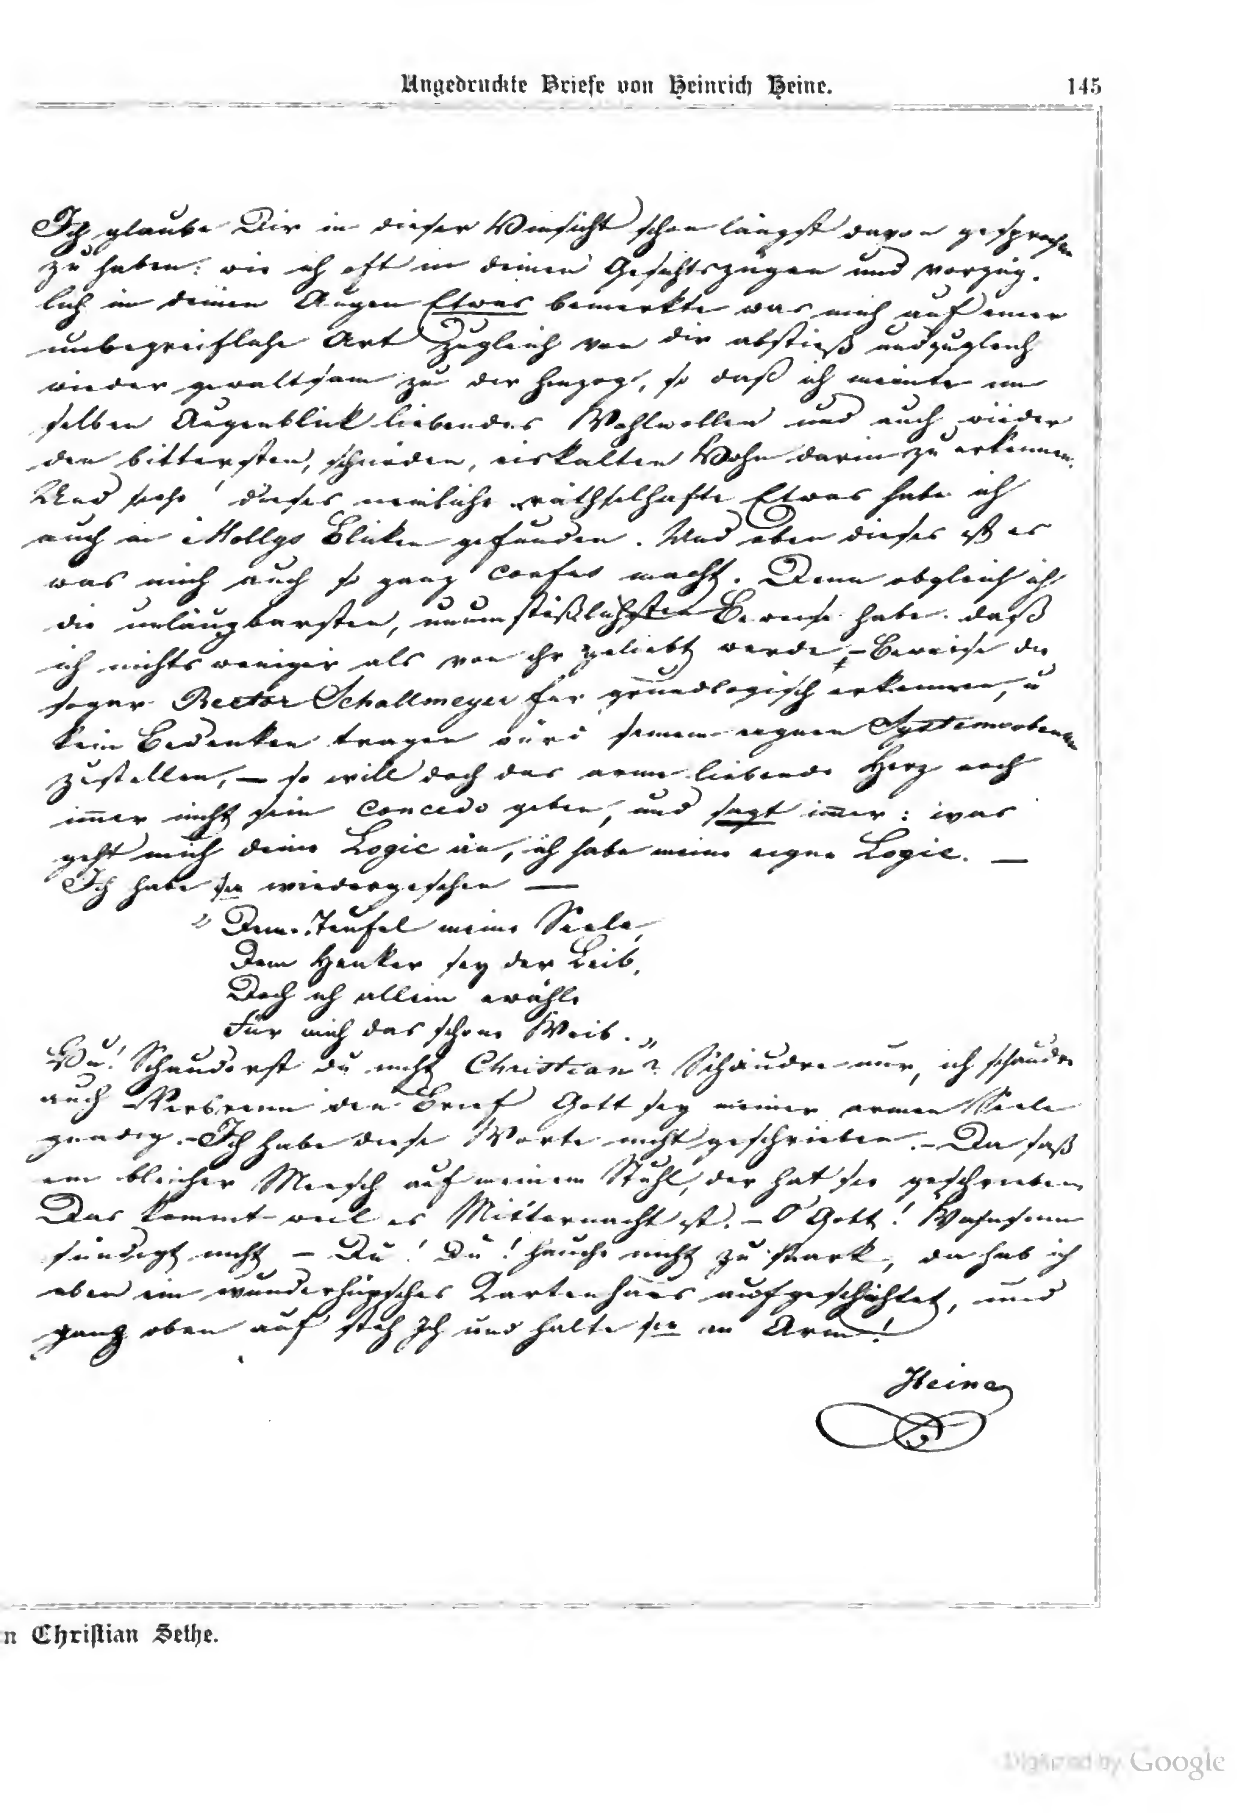 Ungedruckte Briefe von Heinrich Heine. 145
Ich glaube Dir in dieser Hinsicht schon längst davon gesprochen
zu haben: wie ich oft in deinen Gesichtszügen und vorzüg-
lich in deinen Augen Etwas bemerkte was mich auf einer
unbegreifliche Art zugleich von dir abstieß und zugleich
wieder gewaltsam zu dir hinzog, so daß ich meinte im
selben Augenblick liebendes Wohlwollen und auch wieder
den bittersten, schnöden, eiskalten Hohn darin zu erkennen.
Und siehe! dieses nemliche räthselhafte Etwas habe ich
auch in Mollys Blicken gefunden. Und eben dieses ist es
was mich auch so ganz confus macht. Denn obgleich ich
die unläugbarsten, unumstößlichsten Beweise habe: daß
ich nichts weniger als von ihr geliebt werde, – Beweise die
sogar Rector Schallmeyer für grundlogisch erkennen, u
kein Bedenken tragen würde seinem eignen System oben an
zustellen, – so will doch das arme liebende Herz noch
immer nicht sein concedo geben, und sagt immer: was
geht mich deine Logic an, ich habe meine eigne Logic. –
Ich habe sie wiedergesehen –
„Dem Teufel meine Seele,
Dem Henker sey der Leib,
Doch ich allein erwähle
Für mich das schöne Weib."
Hu! Schauderst du nicht Christian? Schaudre nur, ich schaudre
auch – Verbrenn den Brief Gott sey meiner armen Seele
gnädig. – Ich habe diese Worte nicht geschrieben. – Da saß
ein bleicher Mensch auf meinem Stuhl, der hat sie geschrieben
Das kommt weil es Mitternacht ist. – O Gott! Wahnsinn
sündigt nicht – Du! Du! hauche nicht zu stark, da hab ich
eben ein wunderhüpsches Kartenhaus aufgeschichtet, und
ganz oben auf steh Ich und halte sie im Arm!
Heine
n Christian Sethe.
Digitized by Google